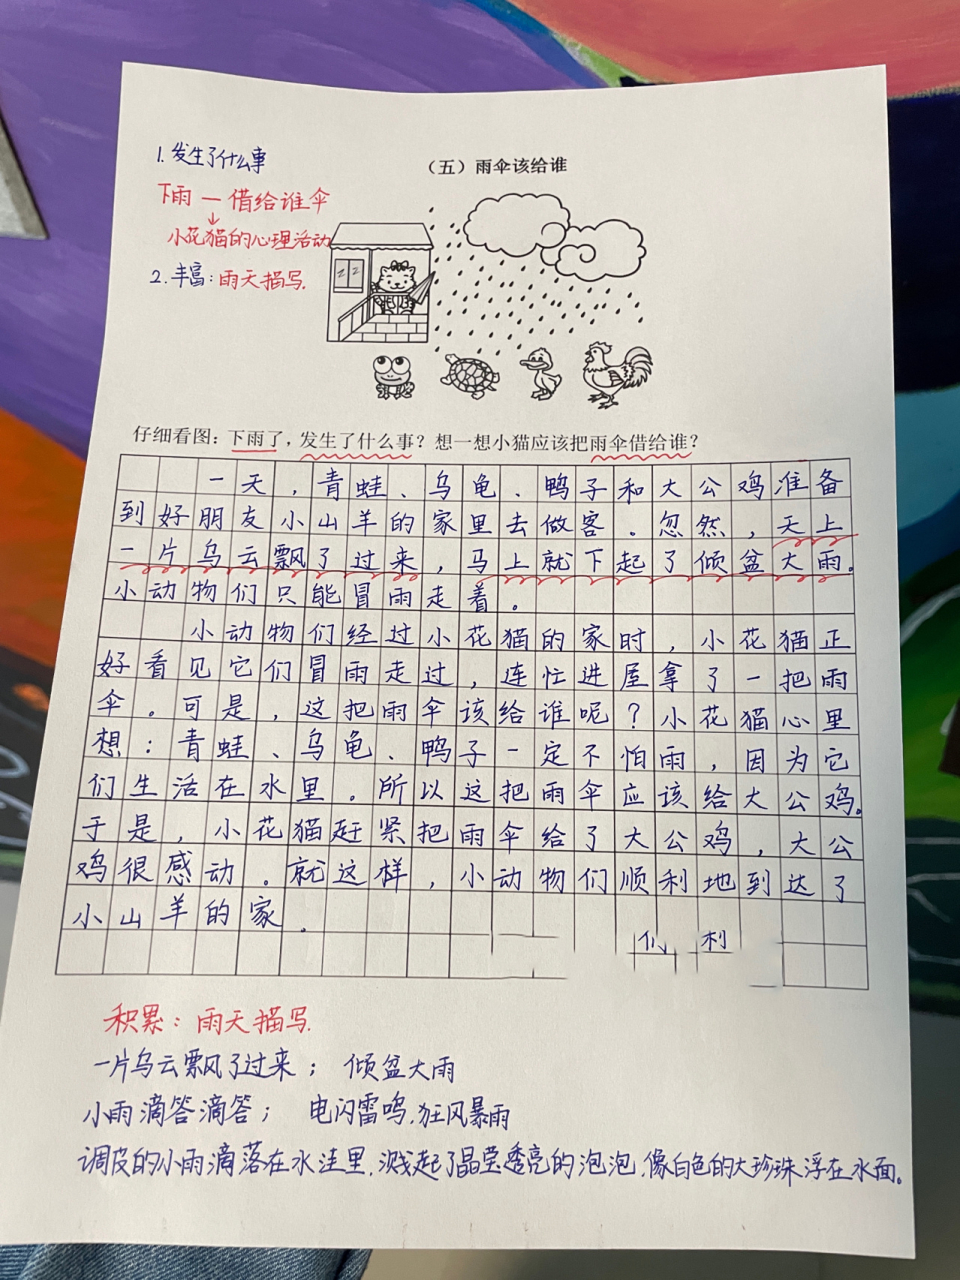 1.发生了什么事
（五）雨伞该给谁
下雨—借给谁伞
小花猫的心理活动
2.丰富：雨天描写.
zz
仔细看图：下雨了，发生了什么事？想一想小猫应该把雨伞借给谁？
一天，青蛙、乌龟、鸭子和大公鸡准备
到好朋友小山羊的家里去做客。忽然，天上
一片乌云飘了过来，马上就下起了倾盆大雨。
小动物们只能冒雨走着。
小动物们经过小花猫的家时，小花猫正
好看见它们冒雨走过，连忙进屋拿了一把雨
伞。可是，这把雨伞该给谁呢？小花猫心里
想：青蛙、乌龟、鸭子一定不怕雨，因为它
们生活在水里。所以这把雨伞应该给大公鸡。
于是，小花猫赶紧把雨伞给了大公鸡，大公
鸡很感动。就这样，小动物们顺利地到达了
小山羊的家.
积累：雨天描写.
一片乌云飘了过来；倾盆大雨
小雨滴答滴答；电闪雷鸣.狂风暴雨
调皮的小雨滴落在水洼里.溅起了晶莹透亮的泡泡.像白色的大珍珠浮在水面。